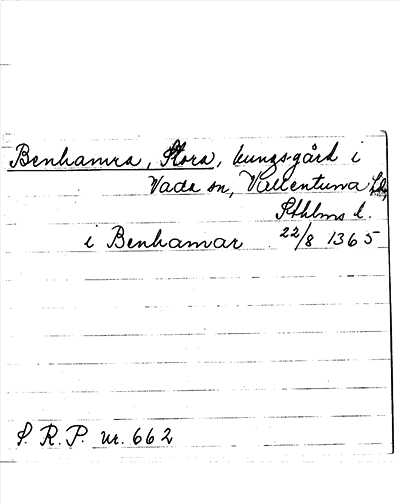 Benhamra, Stora, kungsgård i
Vada sn, Vallentuna hd,
Sthlms l.
i Benhamar 22/8 1365
S. R. P. nr. 662